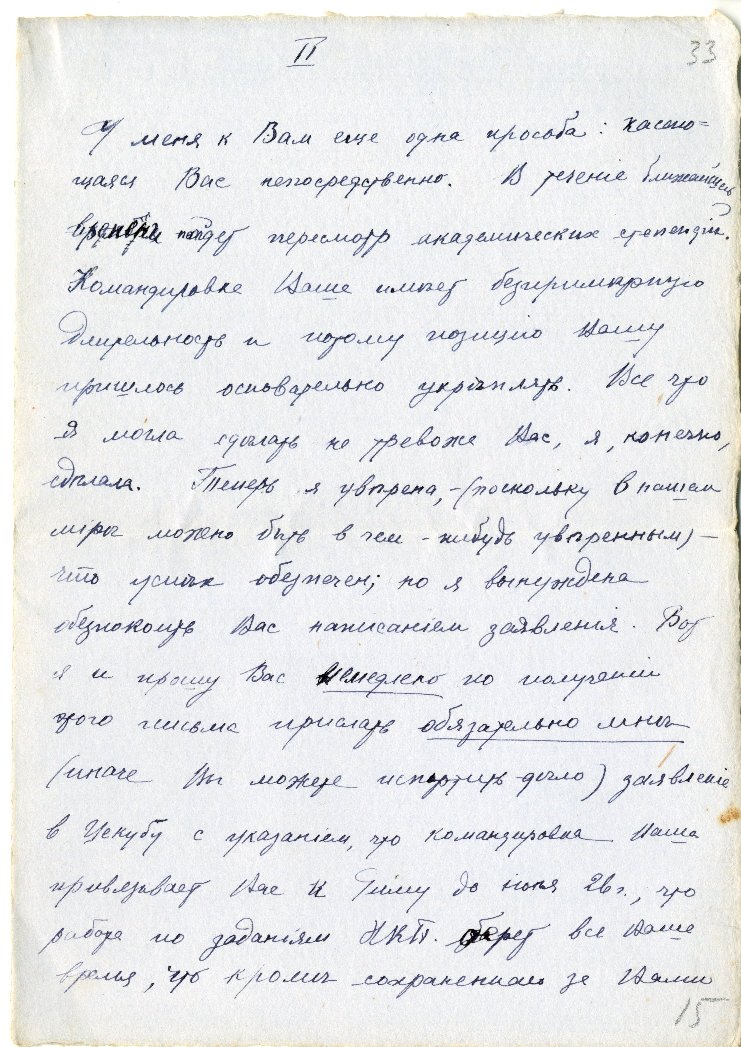 II
33
У меня к Вам еще одна просьба: касаю-
щаяся Вас непосредственно. В теченіе ближайшего
времени пойдет пересмотр академических стипендій.
Командировка Ваша имѣет безпримѣрную
длительность и потому позицию Вашу
пришлось основательно укрѣплять. Все что
я могла сдѣлать не тревожа Вас, я, конечно,
сдѣлала. Теперь я увѣрена, – (поскольку в нашем
мірѣ можно быть в чем-нибудь увѣренным) –
что успѣх обезпечен; но я вынуждена
обезпокоить Вас написаніем заявленія. Вот
я и прошу Вас немедлено по полученіи
этого письма прислать обязательно мнѣ
(иначе Вы можете испортить дѣло) заявленіе
в Цекубу с указаніем, что командировка Ваша
привязывает Вас к Риму до 26 г., что
работа по заданіям НКП. берет все Ваше
время, что кромѣ сохраненнаго за Вами
15